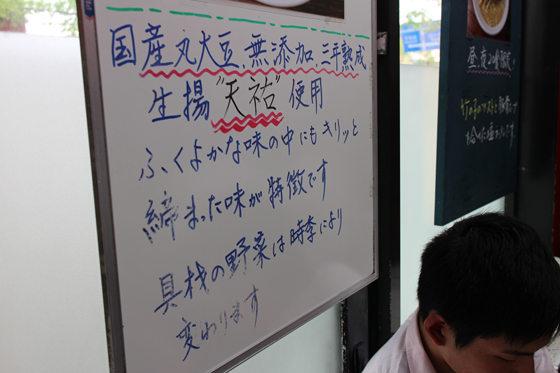 国産丸大豆、無添加、三年熟成
生揚"天祐"使用
ふくよかな味の中にもキリッと
締まった味が特徴です
具材の野菜は時季により
変わります